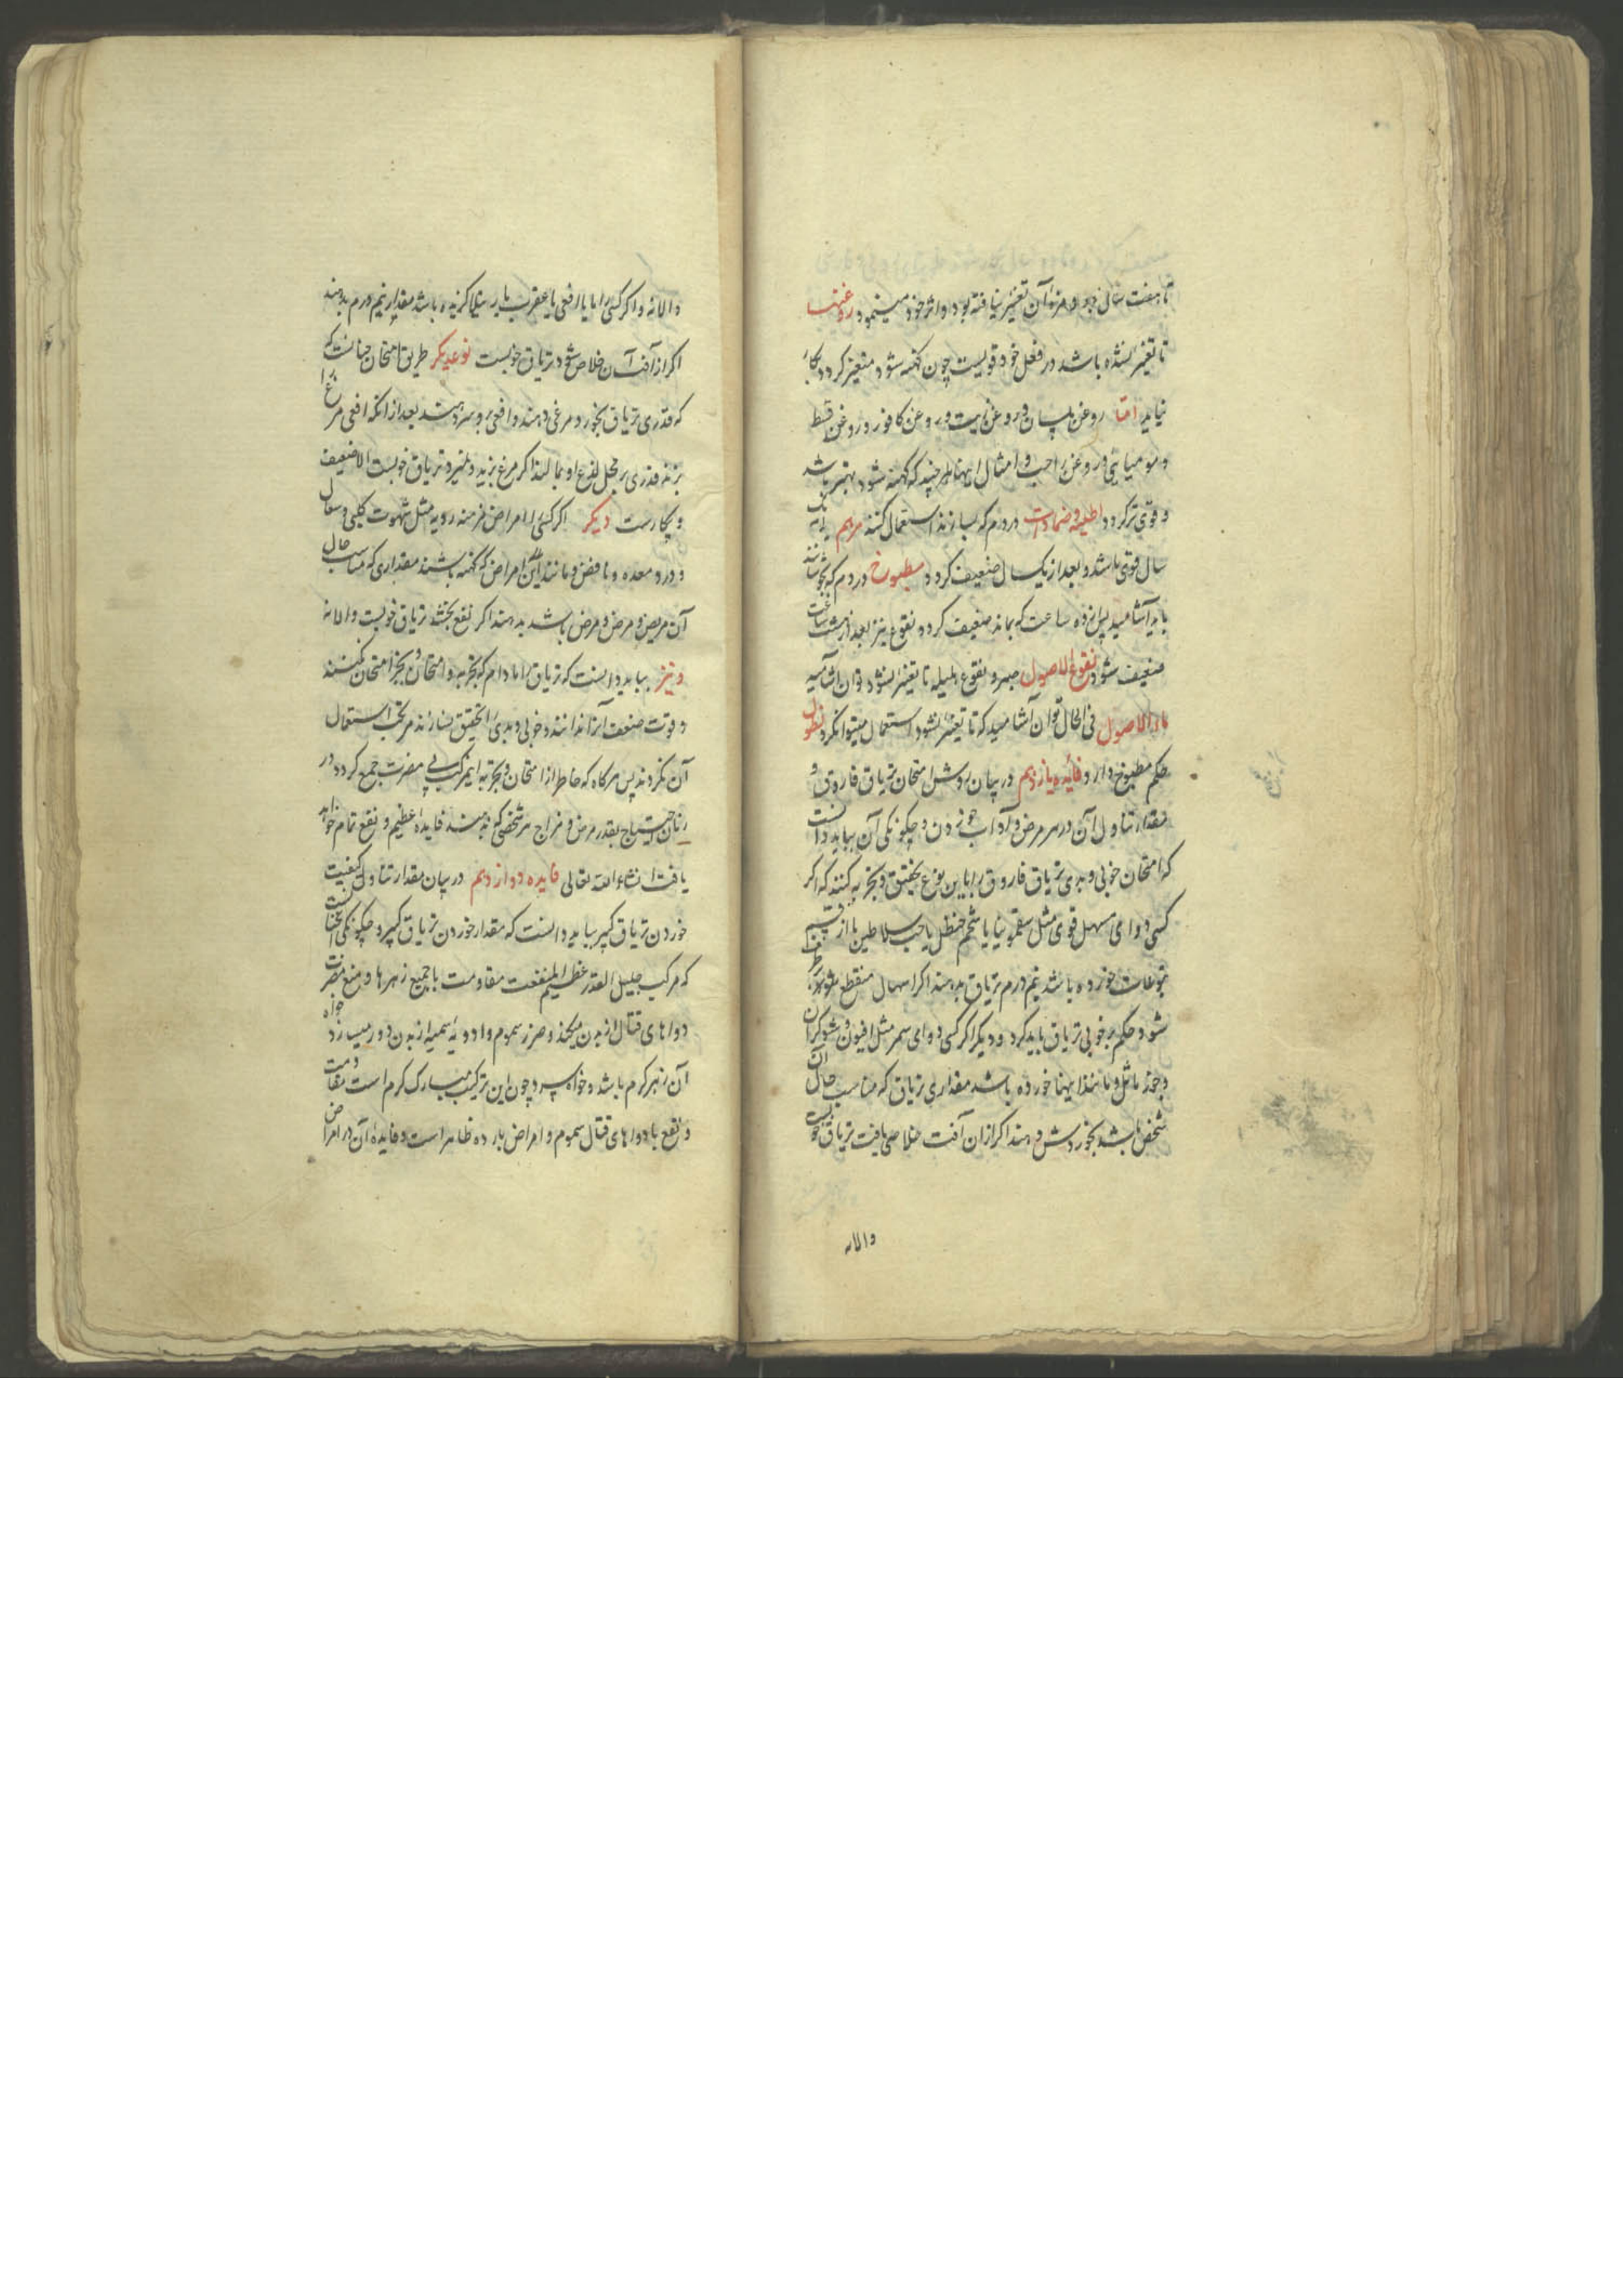 تا هفت سال بود و مزهٔ آن تغییر نیافته بود و اثر خود مینمود روغنها
تا تغییر نشده باشد در فعل خود قویست چون کهنه شود متغیر کردد بکار
نیاید اما روغن بلسان و روغن زیت و روغن کافور و روغن قسط
و مومیایی و روغن راحب و امثال اینها هر چند که کهنه شود بهتر باشد
و قوی تر کردد اطلیه و ضمادات در دم که بسازند استعمال کنند مرهم یک
سال قوی باشد و بعد از یکسال ضعیف کردد مطبوخ در دم که بجوشانند
باید آشامید پس از ده ساعت که بماند ضعیف کردد نقوع نیز بعد از هشت ساعت
ضعیف شود نقوع الاصول صبر و نقوع هلیله تا تغییر نشود توان آشامید
ماء الاصول فی الحال توان آشامید که تا تغییر نشود استعمال میتوان کرد نطول
حکم مطبوخ دارد فائده یازدهم در بیان روش امتحان تریاق فاروق و
مقدار تناول آن در هر مرض و آداب خوردن و چکونکی آن بباید دانست
که امتحان خوبی و بدی تریاق فاروق را باین نوع تحقیق و تجربه کنند که اکر
کسی دوای مسهل قوی مثل سقمونیا یا شحم حنظل یا حب سلاطین یا از قسم
یتوعات خورده باشد نیم درم تریاق بدهند اکر اسهال منقطع
شود حکم بر خوبی تریاق باید کرد و دیکر اکر کسی دوای سمر مثل افیون و شوکران
و جوز ماثل و مانند اینها خورده باشد مقداری تریاق که مناسب حال آن
شخص باشد بخوردش دهند اکر از ان آفت خلاصی یافت تریاق خوبست
والا نه
والا نه و اکر کسی را مار یا افعی یا عقرب یا رتیلا کزیده باشد مقدار نیم درم بدهند
اکر از آفت آن خلاص شود تریاق خوبست نوعدیکر طریق امتحان چنانست که
که قدری تریاق بخورد مرغی دهند و افعی برو سر دهند بعد از انکه افعی مرغ را
بزند قدری بر محل لدغ او بمالند اکر مرغ بزید و نمیرد تریاق خوبست والا ضعیف
و بیکارست دیکر اکر کسی را امراض مزمنه ردیه مثل شهوت کلبی و سعال
و درد معده و نافض و مانند این امراض که کهنه باشند مقداری که مناسب حال
آن مریض و مرض و مرض باشد بدهند اکر نفع بخشد تریاق خوبست والا نه
و نیز بباید دانست که تریاق را مادام که بتجربه و امتحان و تجربه امتحان نکنند
و قوت ضعف آنرا ندانند و خوبی و بدی را تحقیق نسازند مرتکب استعمال
آن نکردند پس هرکاه که خاطر از امتحان و تجربه این مرکب بی مضرت جمع کردد در
زمان احتیاج بقدر مرض و مزاج هر شخصی که بدهند فایده عظیم و نفع تمام خواهد
یافت انشاء الله تعالی فایده دوازدهم در بیان مقدار تناول کیفیت
خوردن تریاق کبیر بباید دانست که مقدار خوردن تریاق کبیر و چکونکی آن چنانست
که مرکب جلیل القدر عظیم المنفعت مقاومت با جمیع زهرها و منع مضرت
دواهای قتال از بدن میکند و ضرر سموم و ادویهٔ سمیه از بدن دور میسازد خواه
آن زهر کرم باشد و خواه سرد چون این ترکیب مبارک کرم است مقاومت
و نفع با دواهای قتال سموم و امراض بارده ظاهر است و فایدهٔ آن در امراض